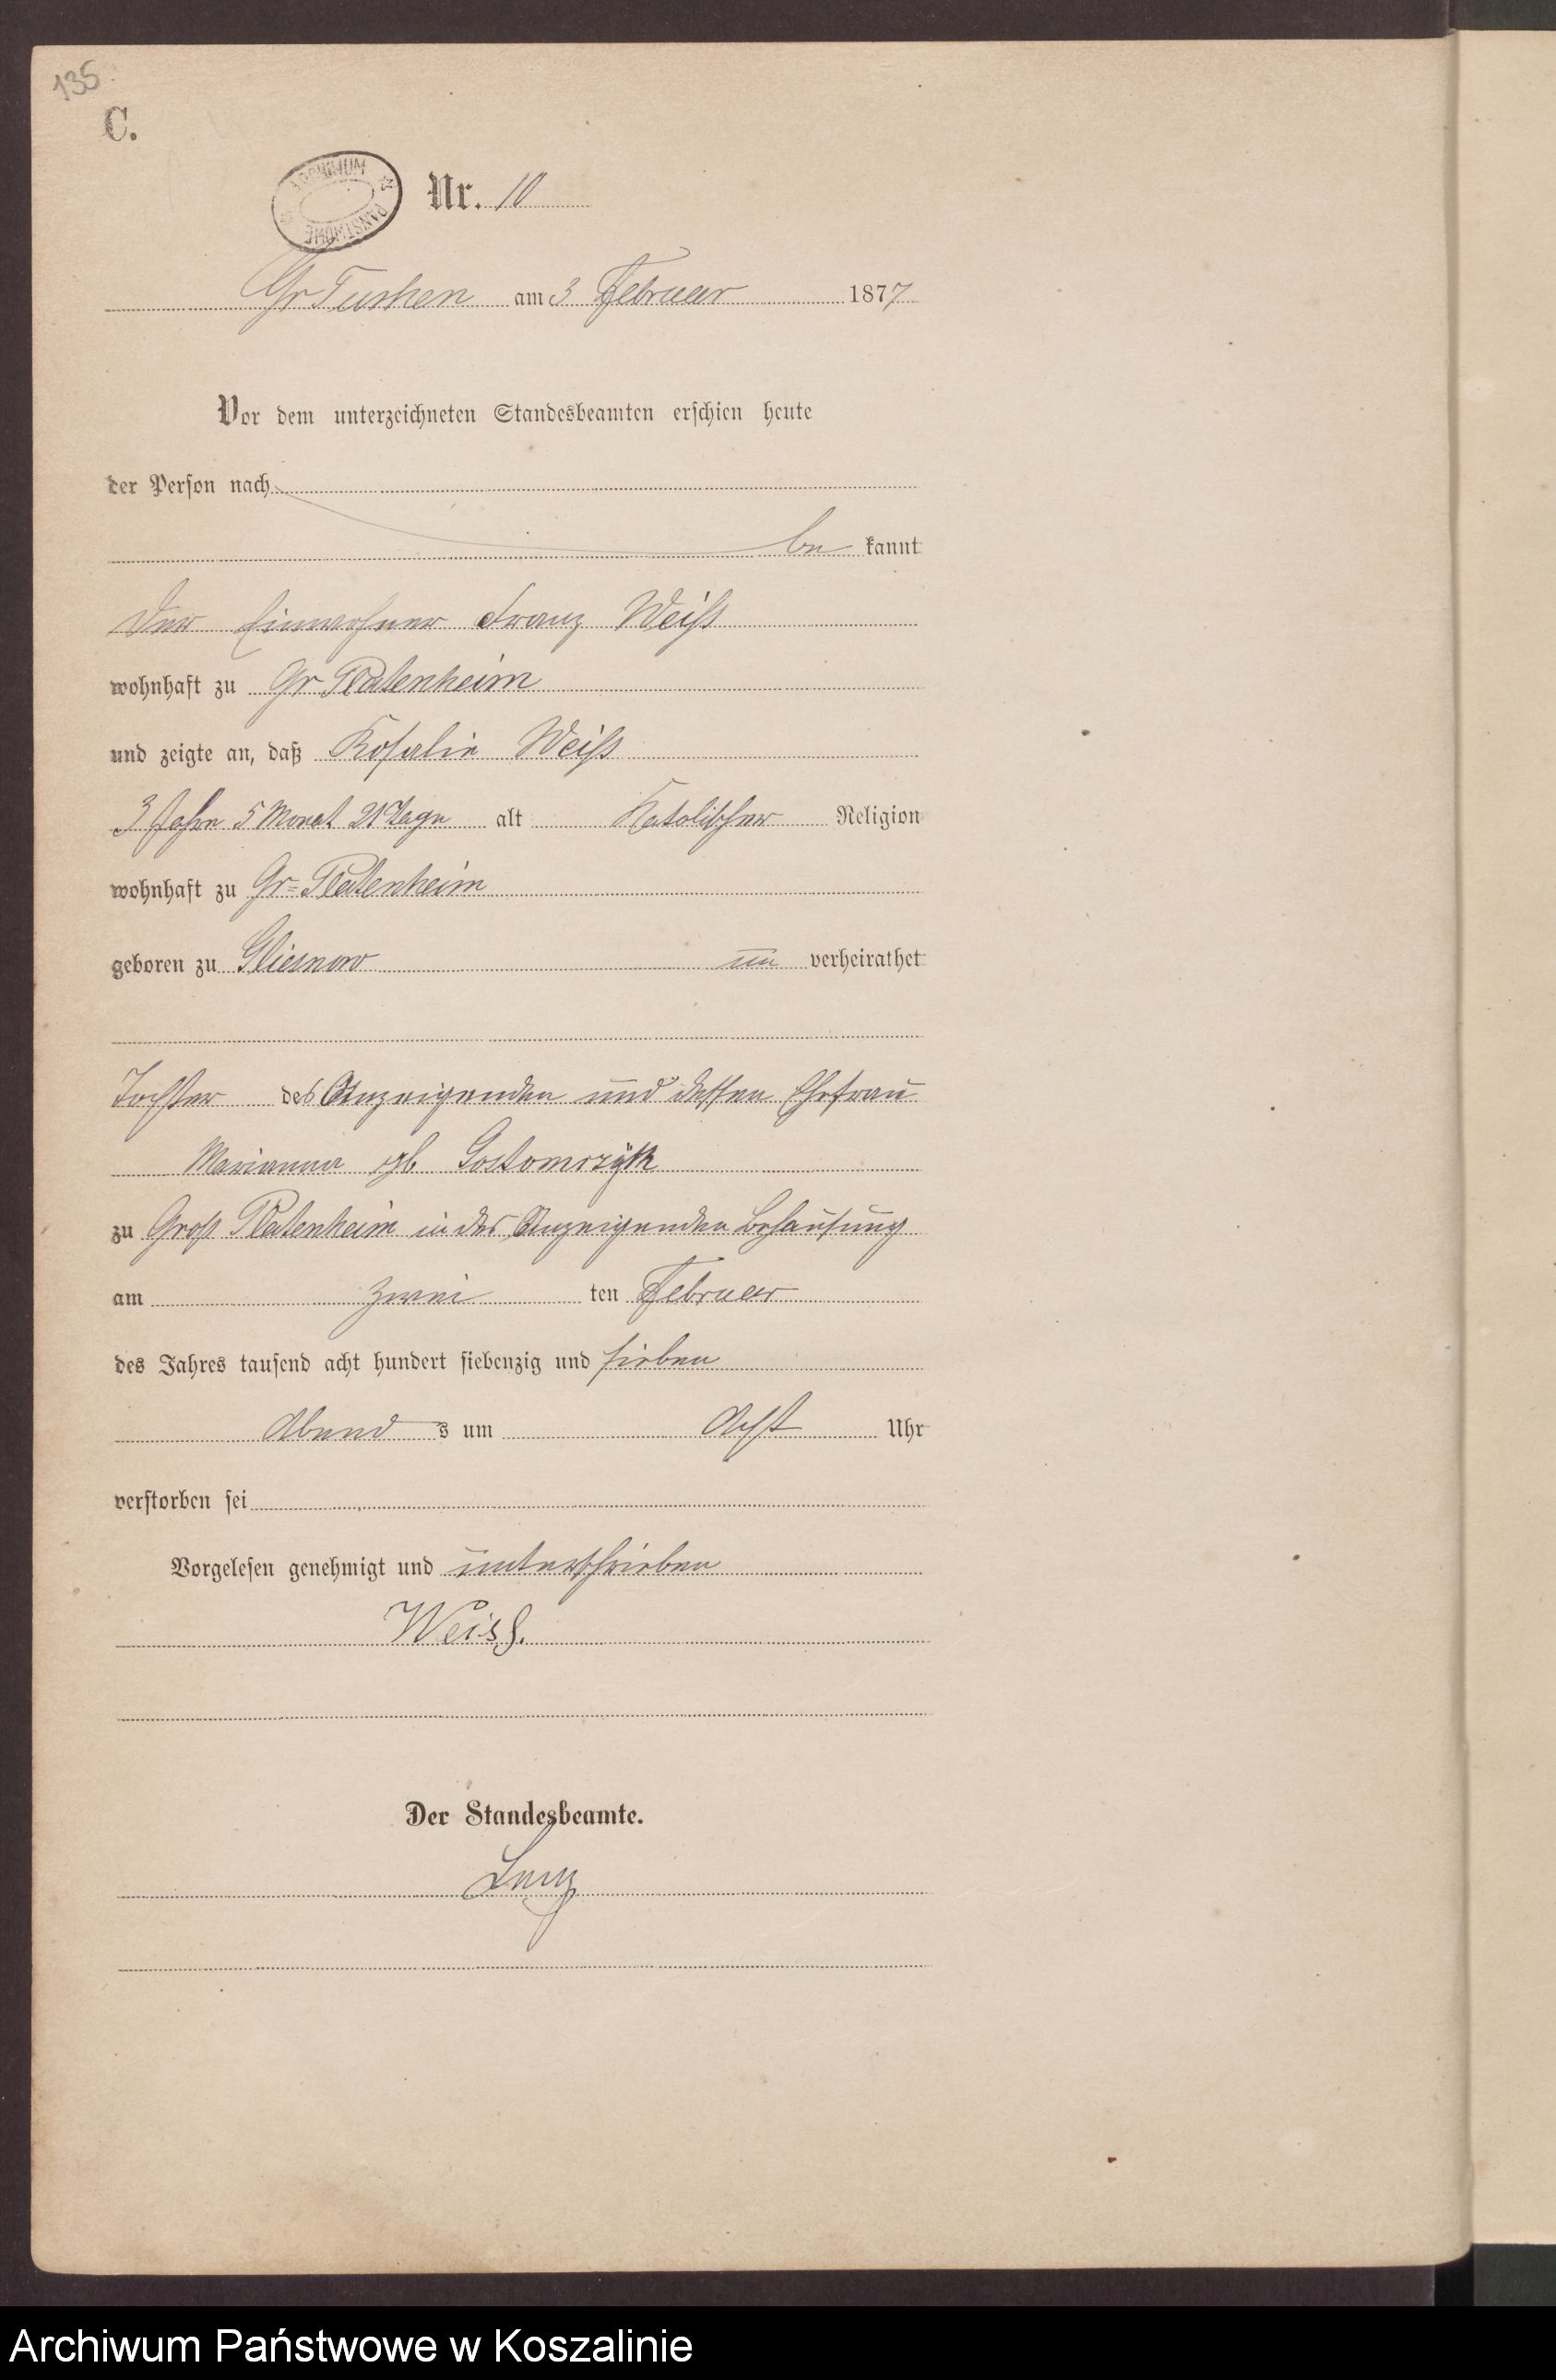 135.
C.
ARCHIWUM
PAŃSTWOWE
Nr. 10
Gr Tuchen am 3 Februar 1877
Vor dem unterzeichneten Standesbeamten erschien heute
der Person nach
be kannt
Der Einwohner Franz Weiß
wohnhaft zu Gr Platenheim
und zeigte an, daß Rosalie Weiß
3 Jahre 5 Monat 21 Tage alt Katolischer Religion
wohnhaft zu Gr= Platenheim
geboren zu Gliesnow un verheirathet
Tochter des Anzeigenden und dessen Ehefrau
Marianna gb Gostomczÿk
zu Groß Platenheim in des Anzeigenden Behausung
am zwei ten Februar
des Jahres tausend acht hundert siebenzig und sieben
Abend s um Acht Uhr
verstorben sei
Vorgelesen genehmigt und unterschrieben
Weiß.
Der Standesbeamte.
Archiwum Państwowe w Koszalinie